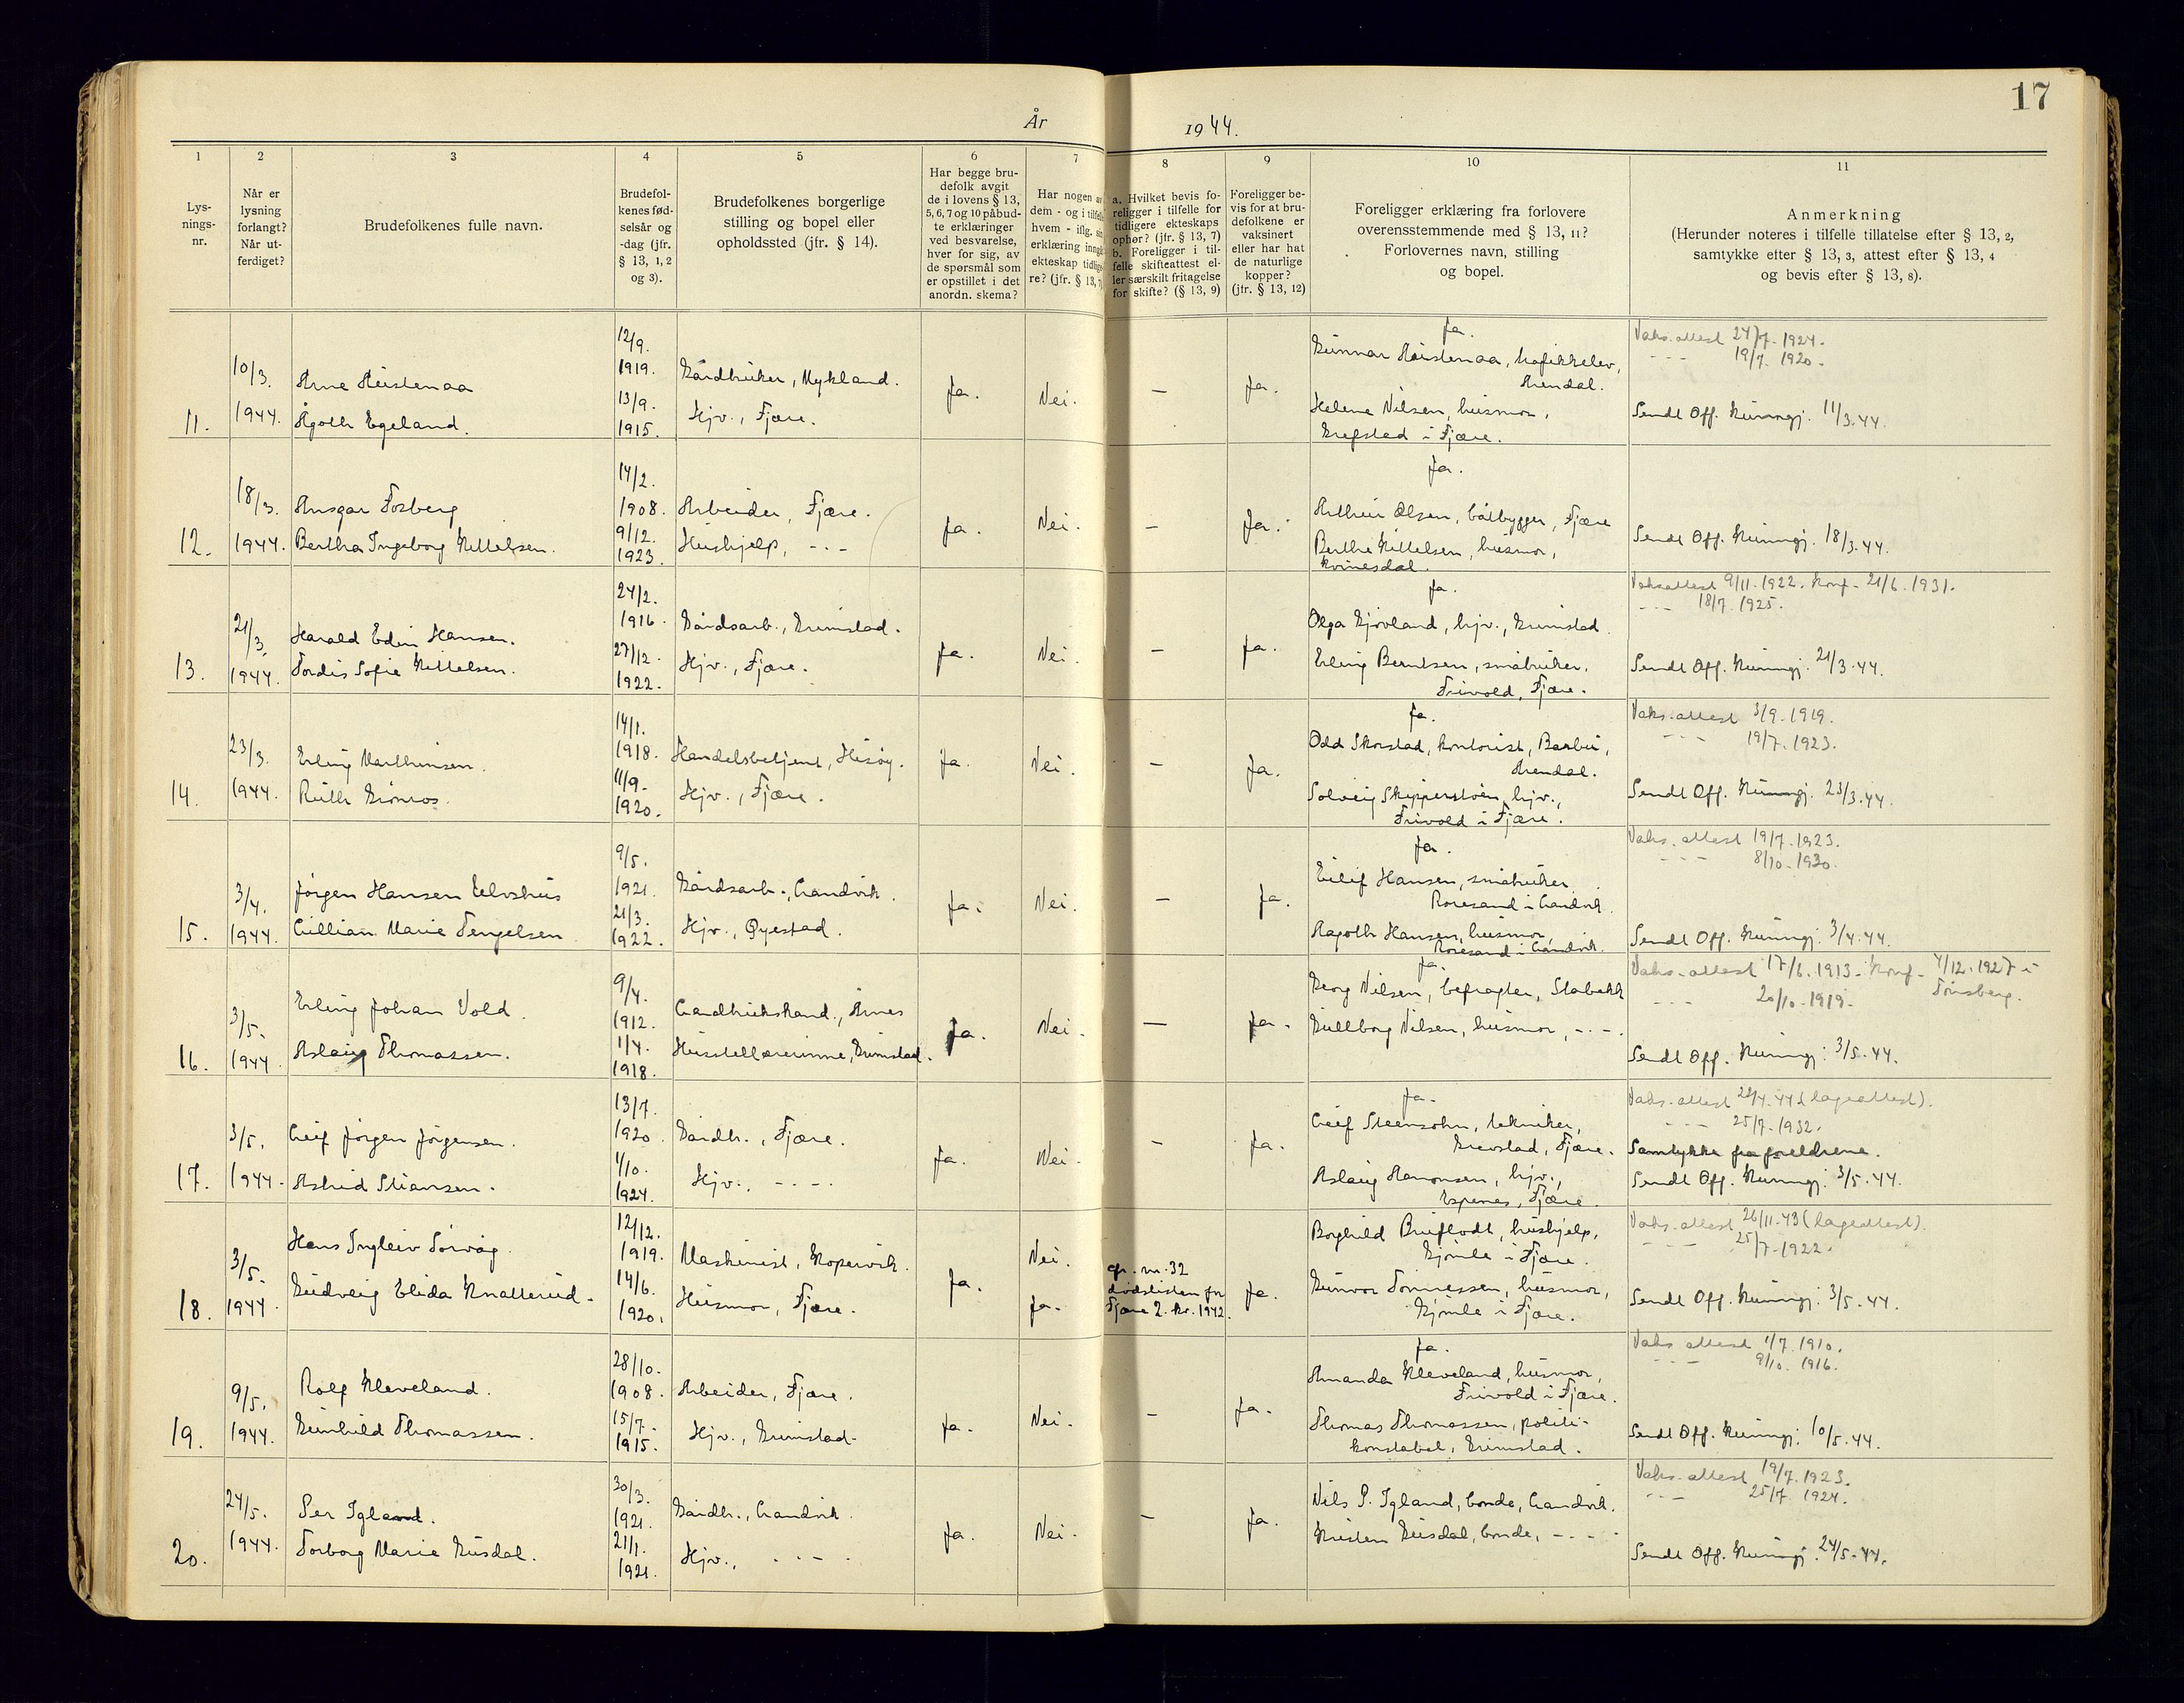 17
År 1944.
1 2 3 4 5 6 7 8 9 10 11
Lys-
nings-
nr.
Når er
lysning
forlangt?
Når ut-
ferdiget?
Brudefolkenes fulle navn.
Brudefol-
kenes fød-
selsår og
-dag (jfr.
§ 13, 1, 2
og 3).
Brudefolkenes borgerlige
stilling og bopel eller
opholdssted (jfr. § 14).
Har begge bru-
defolk avgit
de i lovens § 13,
5, 6, 7 og 10 påbud-
te erklæringer
ved besvarelse,
hver for sig, av
de spørsmål som
er opstillet i det
anordn. skema?
Har nogen av
dem - og i tilfelle
hvem - iflg. sin
erklæring inngått
ekteskap tidlige-
re? (jfr. § 13, 7)
a. Hvilket bevis fo-
religger i tilfelle for
tidligere ekteskaps
ophør? (jfr. § 13, 7)
b. Foreligger i til-
felle skifteattest el-
ler særskilt fritagelse
for skifte? (§ 13, 9)
Foreligger be-
vis for at bru-
defolkene er
vaksinert
eller har hat
de naturlige
kopper?
(jfr. § 13, 12)
Foreligger erklæring fra forlovere
overensstemmende med § 13, 11?
Forlovernes navn, stilling
og bopel.
Anmerkning
(Herunder noteres i tilfelle tillatelse efter § 13, 2,
samtykke efter § 13, 3, attest efter § 13, 4
og bevis efter § 13, 8).
11.
10/3.
1944.
Arne Heistenaa
Ågoth Egeland.
12/9.
1919.
13/9.
1915.
Gårdbruker, Mykland.
Hjv., Fjære.
Ja.
Nei.
—
Ja.
Ja.
Gunnar Heistenaa, trafikkelev,
Arendal.
Helene Nilsen, husmor,
Grefstad i Fjære.
Vaks.attest 24/7. 1924.
- - - 19/7. 1920.
Sendt Off. Kunngj. 11/3.44.
12.
18/3.
1944.
Ansgar Fosberg
Bertha Ingeborg Kittelsen.
14/2.
1908.
9/12.
1923.
Arbeider, Fjære.
Hushjelp, - . -
Ja.
Nei.
—
Ja.
Ja.
Arthur Olsen, båtbygger, Fjære
Berthe Kittelsen, husmor,
Kvinesdal.
Sendt Off. Kunngj. 18/3.44.
13.
21/3.
1944.
Harald Edin Hansen.
Tordis Sofie Kittelsen.
24/2.
1916.
27/12.
1922.
Gårdsarb., Grimstad.
Hjv., Fjære.
Ja.
Nei.
—
Ja.
Ja.
Olga Gjövland, hjv., Grimstad.
Erling Berntsen, småbruker,
Frivold, Fjære.
Vaksattest 9/11. 1922. Konf. 21/6. 1931.
- - - 18/7. 1925.
Sendt Off. Kunngj. 21/3.44.
14.
23/3.
1944.
Erling Marthinsen.
Ruth Grönros.
14/1.
1918.
11/9.
1920.
Handelsbetjent, Hisöy.
Hjv., Fjære.
Ja.
Nei.
—
Ja.
Ja.
Odd Skorstad, kontorist, Barbu,
Arendal.
Solveig Skipperstöen, hjv.,
Frivold i Fjære.
Vaks.attest 3/9. 1919.
- - - 19/7. 1923.
Sendt Off. Kunngj. 23/3.44.
15.
3/4.
1944.
Jörgen Hansen Elvshus
Lillian Marie Tengelsen
9/5.
1921.
21/3.
1922.
Gårdsarb., Landvik.
Hjv., Öyestad.
Ja.
Nei.
—
Ja.
Ja.
Eilif Hansen, småbruker
Roresand i Landvik.
Ragoth Hansen, husmor
Roresand i Landvik.
Vaks.attest 19/7. 1923.
- - - 8/10. 1930.
Sendt Off. Kunngj. 3/4.44.
16.
3/5.
1944.
Erling Johan Vold.
Aslaug Thomassen.
9/4.
1912.
1/4.
1918.
Landbrukskand., Årnes
Husstellærerinne, Grimstad.
Ja.
Nei.
—
Ja.
Ja.
Georg Nilsen, befragter, Stabekk
Gullborg Nilsen, husmor, - . -
Vaks.attest 17/6. 1913. Konf. 4/12. 1927 i
- - - 20/10. 1919. Tönsberg.
Sendt Off. Kunngj. 3/5.44.
17.
3/5.
1944.
Leif Jörgen Jörgensen.
Astrid Stiansen.
13/7.
1920.
1/10.
1924.
Gårdb., Fjære.
Hjv., - . -
Ja.
Nei.
—
Ja.
Ja.
Leif Steensohn, tekniker,
Grevstad, Fjære.
Aslaug Aamonsen, hjv.,
Espenes, Fjære.
Vaks.attest 28/4.44 (lageattest).
- - - 25/7. 1932.
Samtykke fra foreldrene.
Sendt Off. Kunngj. 3/5.44.
18.
3/5.
1944.
Hans Ingleiv Sörvåg.
Gudveig Elida Knatterud.
12/12.
1919.
14/6.
1920.
Maskinist, Kopervik.
Husmor, Fjære.
Ja.
Nei.
Ja.
gr. nr. 32
dödslisten for
Fjære 2. kv. 1942.
Ja.
Borghild Bruflodt, hushjelp,
Gjömle i Fjære.
Gunvor Tönnessen, husmor,
Gjömle i Fjære.
Vaks.attest 26/11.43 (lageattest).
- - - 25/7. 1922.
Sendt Off. Kunngj. 3/5.44.
19.
9/5.
1944.
Rolf Kleveland.
Gunhild Thomassen.
28/10.
1908.
15/7.
1915.
Arbeider, Fjære.
Hjv., Grimstad.
Ja.
Nei.
—
Ja.
Ja.
Amanda Kleveland, husmor,
Frivold i Fjære.
Thomas Thomassen, politi-
konstabel, Grimstad.
Vaks.attest 1/7. 1910.
- - - 9/10. 1916.
Sendt Off. Kunngj. 10/5.44.
20.
24/5.
1944.
Per Igland.
Torborg Marie Gusdal.
30/3.
1921.
21/1.
1921.
Gårdb., Landvik.
Hjv., - . -
Ja.
Nei.
—
Ja.
Nils P. Igland, bonde, Landvik.
Kristen Gusdal, bonde, - . -
Vaks.attest 19/7. 1923.
- - - 25/7. 1924.
Sendt Off. Kunngj. 24/5.44.